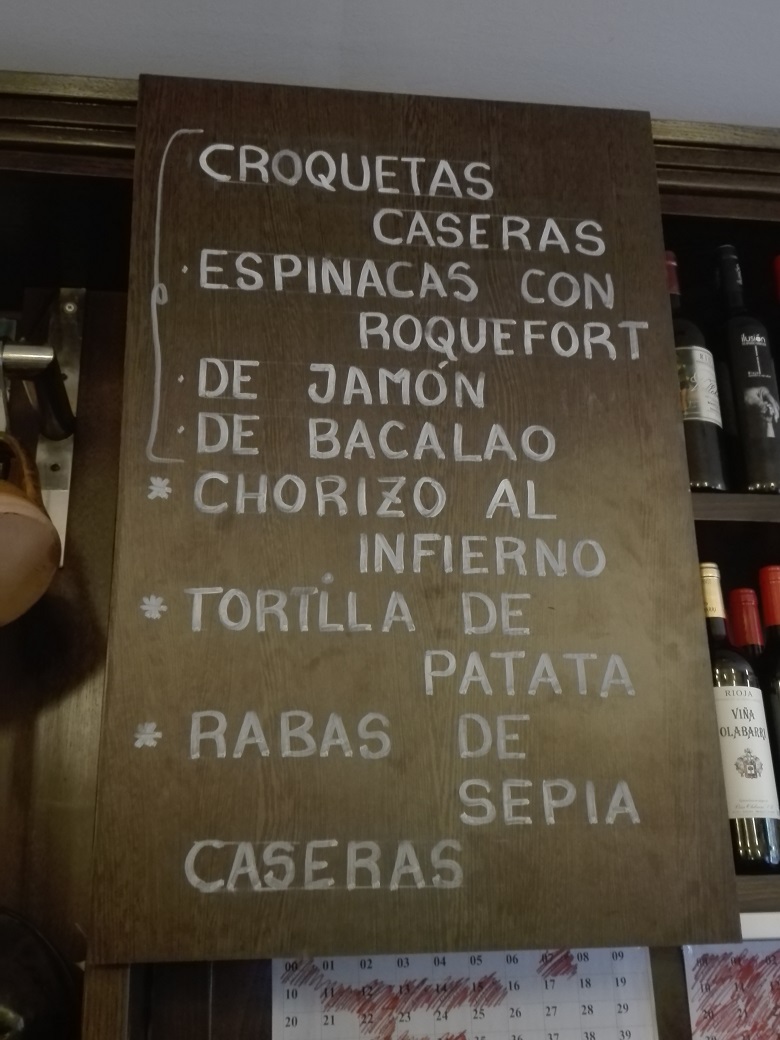 CROQUETAS
CASERAS
· ESPINACAS CON
ROQUEFORT
· DE JAMÓN
· DE BACALAO
* CHORIZO AL
INFIERNO
* TORTILLA DE
PATATA
* RABAS DE
SEPIA
CASERAS
ilusión
RIOJA
VIÑA
OLABARRI
00 01 02 03 04 05 06 07 08 09
10 11 12 13 14 15 16 17 18 19
20 21 22 23 24 25 26 27 28 29